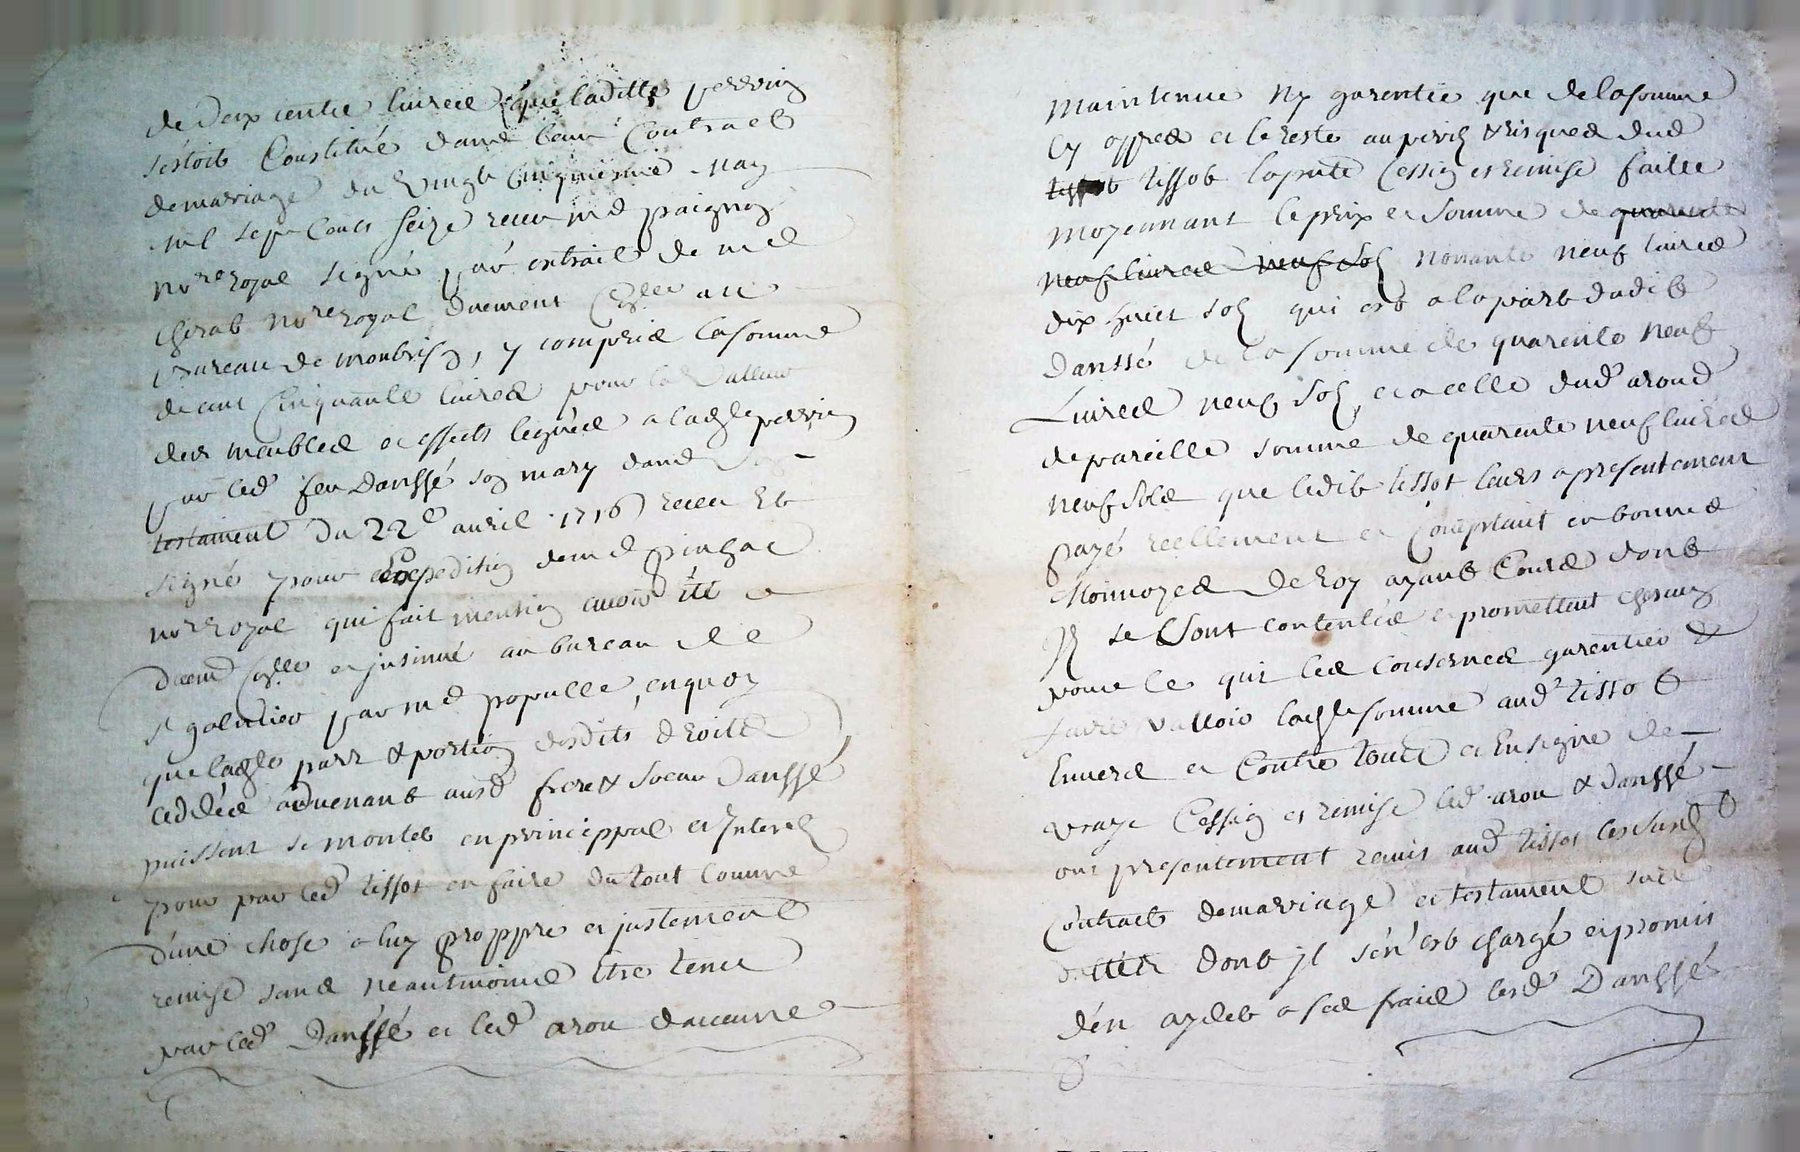 de deux cents livres que laditte perrin
s'estoit Constitué dans leur Contract
de mariage du vingt cinquiesme May
mil sept Cents seize receu me paignon
nore royal signé par extrait de me
Cherat nore royal duement Collé au
bureau de montbrison, y compris la somme
de cent Cinquante livres pour la valleur
des meubles et effects legués a lade perrin
par led feu Danssé son mary dans son
testament du 22e avril 1716 receu et
signé pour Expedition de me pinhac
nore royal qui fait mention avoir été
duemt collé et insinué au bureau de
st galmier par me populle, en quoy
que lade part & portion desdits droits
ceddés advenant ausd frere & soeur Danssé
puissent se monter en princippal et Interest
pour par led tissot en faire du tout comme
d'une chose a luy proppre et justement
remise sans neantmoins être tenu
par led Danssé et led arou d'aucune
maintenue ny garentie que de la somme
cy appres et le reste au peril & risques dud
tissot tissot la pnte Cession et remise faitte
moyennant le prix et somme de quarente
neuf livres neuf sols nonante neuf livres
dix huict sols qui est a la part dudit
Danssé de la somme de quarente neuf
Livres neuf sols, et a celle dud aroud
de pareille somme de quarente neuf livres
neuf sols que ledit tissot leurs a presentement
payé reellement et Comptant en bonnes
Monnoyes de roy ayant Cours dont
Ils se sont contentés et promettent chacun
pour ce qui les conserne garentir &
faire valloir lade somme aud tissot
Envers et Contre tous et En signe de
vraye Cession et remise led arou & danssé
ont presentement remis aud tissot les susds
Contract de mariage et testament sus
dattés dont il s'en est chargé et promis
d'en ayder a ses frais lesd Danssé